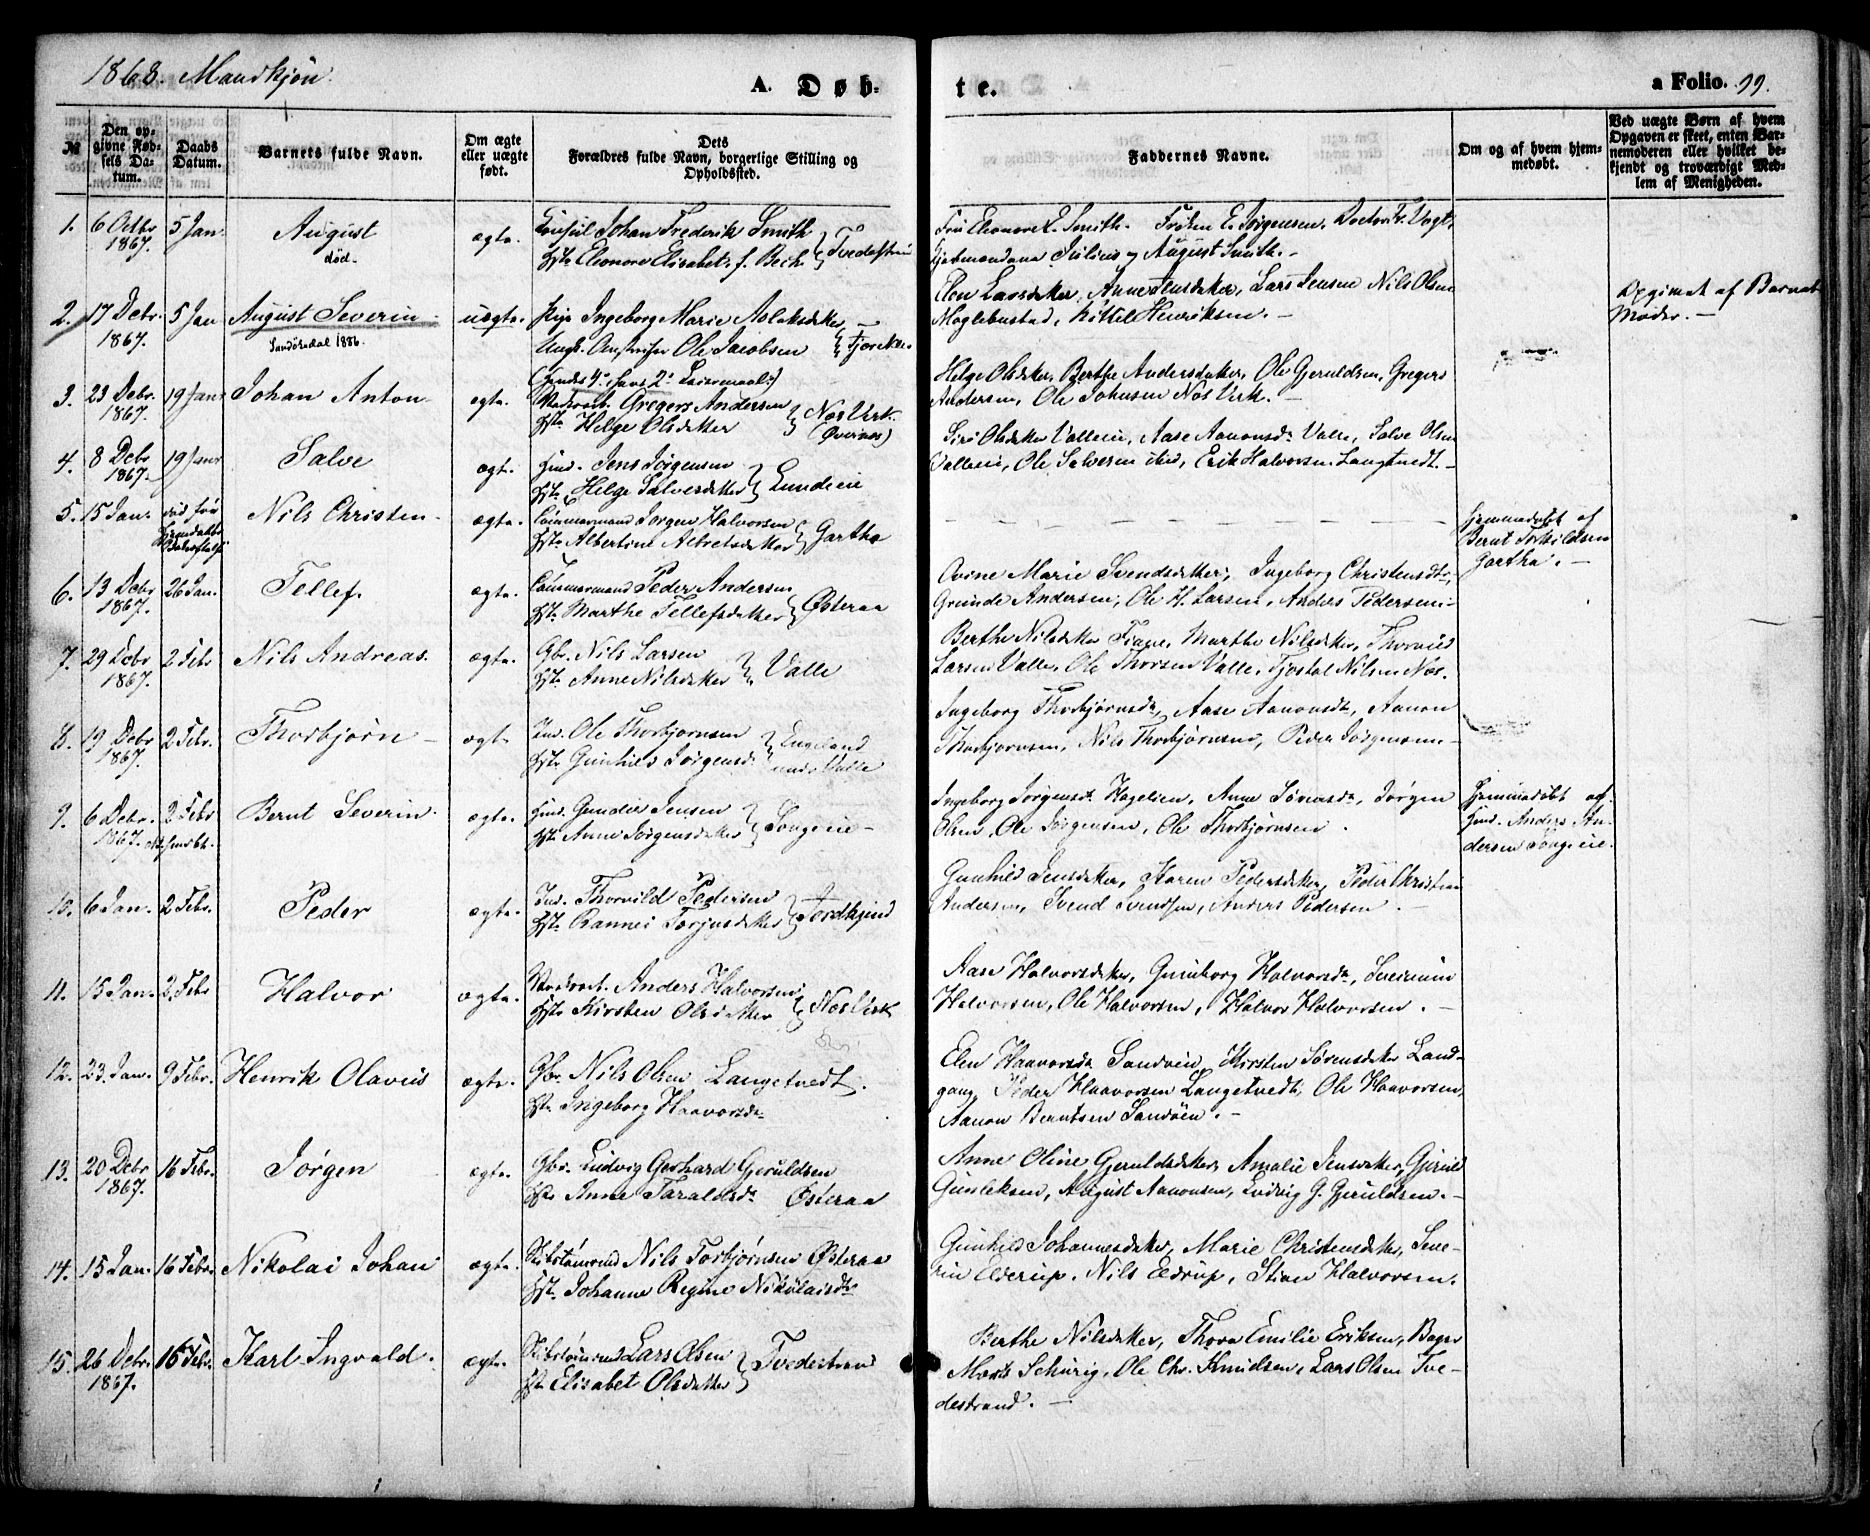 1868. Mandkjøn.
A. Døb-
te.
a Folio. 99.
№
Den op-
givne Fød-
sels Da-
tum.
Daabs
Datum.
Barnets fulde Navn.
Om ægte
eller uægte
født.
Dets
Forældres fulde Navn, borgerlige Stilling og
Opholdssted.
Faddernes Navne.
Om og af hvem hjem-
medøbt.
Ved uægte Børn af hvem
Opgaven er skeet, enten Bar-
nemoderen eller hvilket be-
kjendt og troværdigt Med-
lem af Menigheden.
1. 6 Octbr 1867. 5 Jan. August død- ægte.
Consul Johan Frederik Smith
Hst. Eleonore Elisabet f. Bech } Tvedestrand
Fru Eleonore E. Smith. Frøken E. Jørgensen, Doctor Fr. Vogt,
Kjøbmændene Julius og August Smith.-
2. 17 Debr. 1867. 5 Jan August Severin Sandøkedal 1886. uægte.
Pige Ingeborg Marie Aslaksdatter, -
Ungk. Ole Jacobsen
(Hendes 4de hans 2det Leiermaal.)
Elen Larsdatter, Anne Jensdatter, Lars Jensen Nils Olsen
Moglebustad, Kittel Henriksen.-
Opgivet af Barnets
Moder.-
3. 23 Debr. 1867. 19 Janr Johan Anton. ægte.
Gregers Andersen
Hst. Helge Olsdatter } Næs Verk. (Øvernæs)
Helge Olsdatter, Berthe Andersdatter, Ole Geruldsen, Gregers
Andersen, Ole Johnsen Næs Verk.-
4. 8 Debr 1867. 19 Janr Salve ægte.
Huusm. Jens Jørgensen
Hst. Helge Salvesdatter } Lundeeie
Siri Olsdatter Valleeie, Aase Aanonsdtr Valle, Salve Olsen
Valleeie, Ole Salvesen ibid, Erik Halvorsen Langtvedt.-
5. 15 Jan. Nils Christen. ægte.
Tømmermand Jørgen Halvorsen
Hst. Albertine Albretsdatter } Gartha
Hjemmedøbt af
Bernt Torkildsen
Gartha.-
6. 13 Debr 1867. 26 Jan. Tellef. ægte.
Tømmermand Peder Andersen
Hst. Marthe Tellefsdatter } Østeraa
Ovine Marie Svendsdatter, Ingeborg Christensdtr,
Grunde Andersen, Ole H. Larsen, Anders Pedersen.-
7. 29 Debr 1867. 2 Febr Nils Andreas. ægte.
Gbr. Nils Larsen
Hst. Anne Nilsdatter } Valle
Berthe Nilsdatter Fiane, Marthe Nilsdatter, Thorvild
Larsen Valle, Ole Thorsen Valle, Tjøstol Nilsen Næs.
8. 19 Debr 1867. 2 Febr. Thorbjørn ægt.
Ind. Ole Thorbjørnsen
Hst. Gunhild Jørgensd. } Engeland under Valle
Ingeborg Thorbjørnsdtr, Aase Aanonsdtr, Aanon
Thorbjørnsen, Nils Thorbjørnsen, Peder Jørgensen.-
9. 6 Debr. 1867. 2 Febr Bernt Severin. ægte.
Huusm. Gunder Jensen
Hst. Anne Jørgensdatter } Songeeie-
Ingeborg Jørgensdtr Hagelien, Anne Sørensdtr, Jørgen
Olsen, Ole Jørgensen, Ole Thorbjørnsen.
Hjemmedøbt af
Huusm. Anders An-
dersen Songeeie.
10. 6 Jan. 2 Febr. Peder ægte.
Ind. Thorvild Pedersen
Hst. Rannei Torjusdatter
Gunhild Jensdatter, Karen Pedersdatter, Peder Christian
Andersen, Svend Svendsen, Anders Pedersen.-
11. 15 Jan. 2 Febr Halvor ægte.
Anders Halvorsen
Hst. Kirsten Olsdatter } Næs Verk
Aase Halvorsdatter, Gunborg Halvorsdtr,
Halvorsen, Ole Halvorsen, Halvor Halvorsen.-
12. 23 Jan. 9 Febr. Henrik Olavus ægte.
Gbr. Nils Olsen Langetvedt.
Hst. Ingeborg Haavorsdtr
Elen Haavorsdtr Sandveie, Kirsten Sørensdatter Land-
gang, Peder Haavorsen Langetvedt, Ole Haavorsen,
Aanon Berntsen Sandøen.-
13. 20 Debr 1867. 16 Febr. Jørgen ægte.
Gbr. Ludvig Gerhard Gjeruldsen
Hst. Anne Taraldsdtr Østeraa
Anne Oline Gjeruldsdatter, Amalie Jensdatter, Gjeruld
Gunleksen, August Aanonsen, Ludvig G. Gjeruldsen.-
14. 15 Jan. 16 Febr. Nikolai Johan ægte.
Skibstømrmd Nils Torbjørnsen Østeraa
Hst. Johanne Regine Nikolaisdtr
Gunhild Johannesdatter, Marie Christensdatter, Seve-
rin Elderup, Nils Eldrup, Stian Halvorsen.
15. 26 Debr. 1867. 16 Febr. Karl Ingvald. ægte.
Skibstømrmd Lars Olsen
Hst. Elisabet Olsdatter } Tvedestrand
Berthe Nilsdatter, Thora Emilie Eriksen, Bager
Moritz Schürig, Ole Chr. Knudsen, Lars Olsen Tve-
destrand.-